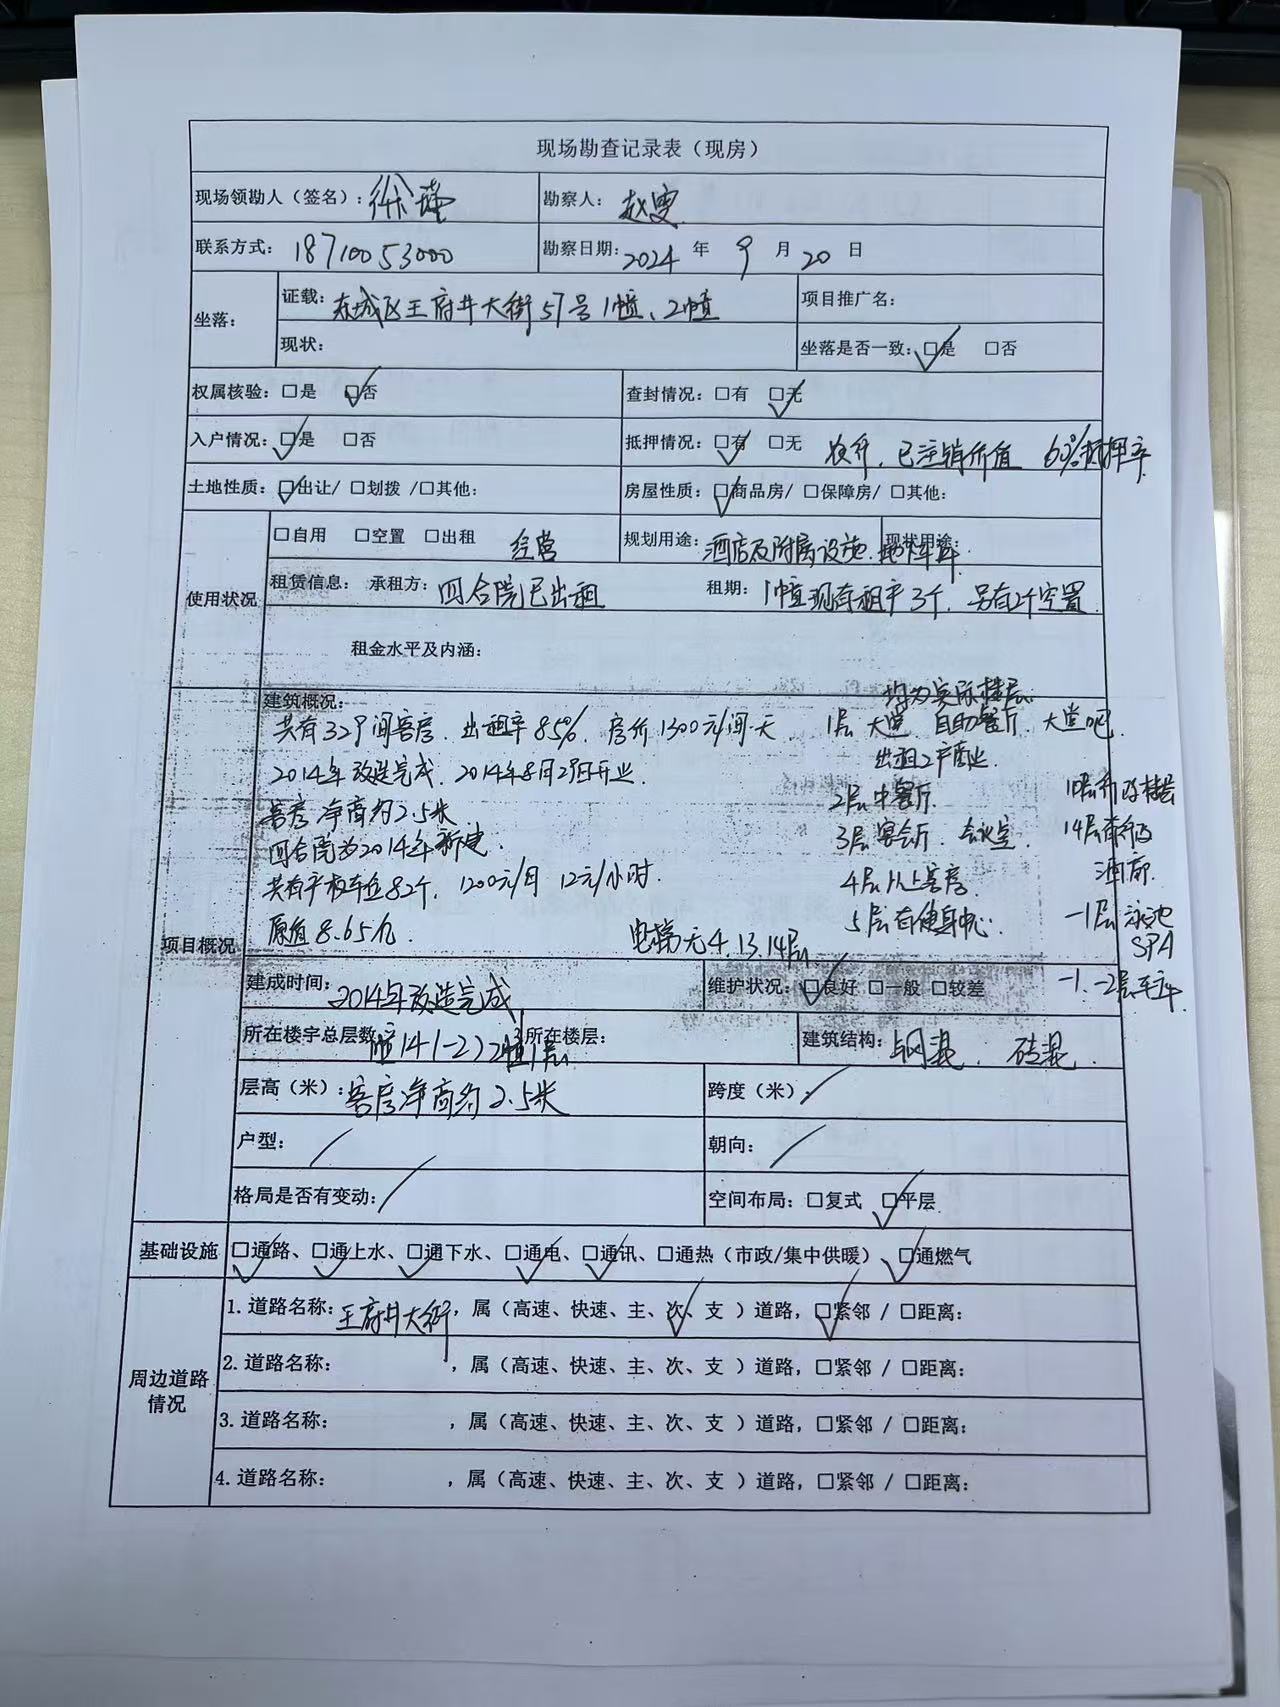 现场勘查记录表（现房）
现场领勘人（签名）：徐瑾 勘察人：赵雯
联系方式：18710053000 勘察日期：2024 年 9 月 20 日
坐落： 证载：东城区王府井大街57号1幢、2幢 项目推广名：
现状： 坐落是否一致：☑是 □否
权属核验：□是 ☑否 查封情况：□有 ☑无
入户情况：☑是 □否 抵押情况：☑有 □无 农行，已注销价值 60%抵押率
土地性质：☑出让/ □划拨 /□其他： 房屋性质：☑商品房/ □保障房/ □其他：
使用状况 □自用 □空置 □出租 经营 规划用途：酒店及附属设施、地下车库 现状用途：
租赁信息： 承租方：四合院已出租 租期：1幢现有租户3个，另有2个空置
租金水平及内涵：
项目概况 建筑概况： 均为实际楼层
共有329间客房，出租率85%，房价1300元/间·天 1层 大堂 自助餐厅 大堂吧
出租2户商业
2014年改造完成，2014年8月29日开业 2层 中餐厅
客房净高约2.5米 3层 宴会厅 会议室 14层有行政
四合院为2014年新建 4层以上客房 酒廊
共有平板车位82个，1200元/月 12元/小时 5层有健身中心 -1层 泳池
SPA
原值8.65亿 电梯无4.13.14层
建成时间：2014年改造完成 维护状况：☑良好 □一般 □较差 -1、-2层车库
所在楼宇总层数：1幢14(-2) 2幢1层 所在楼层： 建筑结构：钢混、砖混
层高（米）：客房净高约2.5米 跨度（米）：/
户型：/ 朝向：/
格局是否有变动：/ 空间布局：□复式 ☑平层
基础设施 ☑通路、☑通上水、☑通下水、☑通电、☑通讯、□通热（市政/集中供暖） ☑通燃气
周边道路情况 1.道路名称：王府井大街，属（高速、快速、主、次✓、支 ）道路，☑紧邻 / □距离：
2.道路名称： ，属（高速、快速、主、次、支 ）道路，□紧邻 / □距离：
3.道路名称： ，属（高速、快速、主、次、支 ）道路，□紧邻 / □距离：
4.道路名称： ，属（高速、快速、主、次、支 ）道路，□紧邻 / □距离：